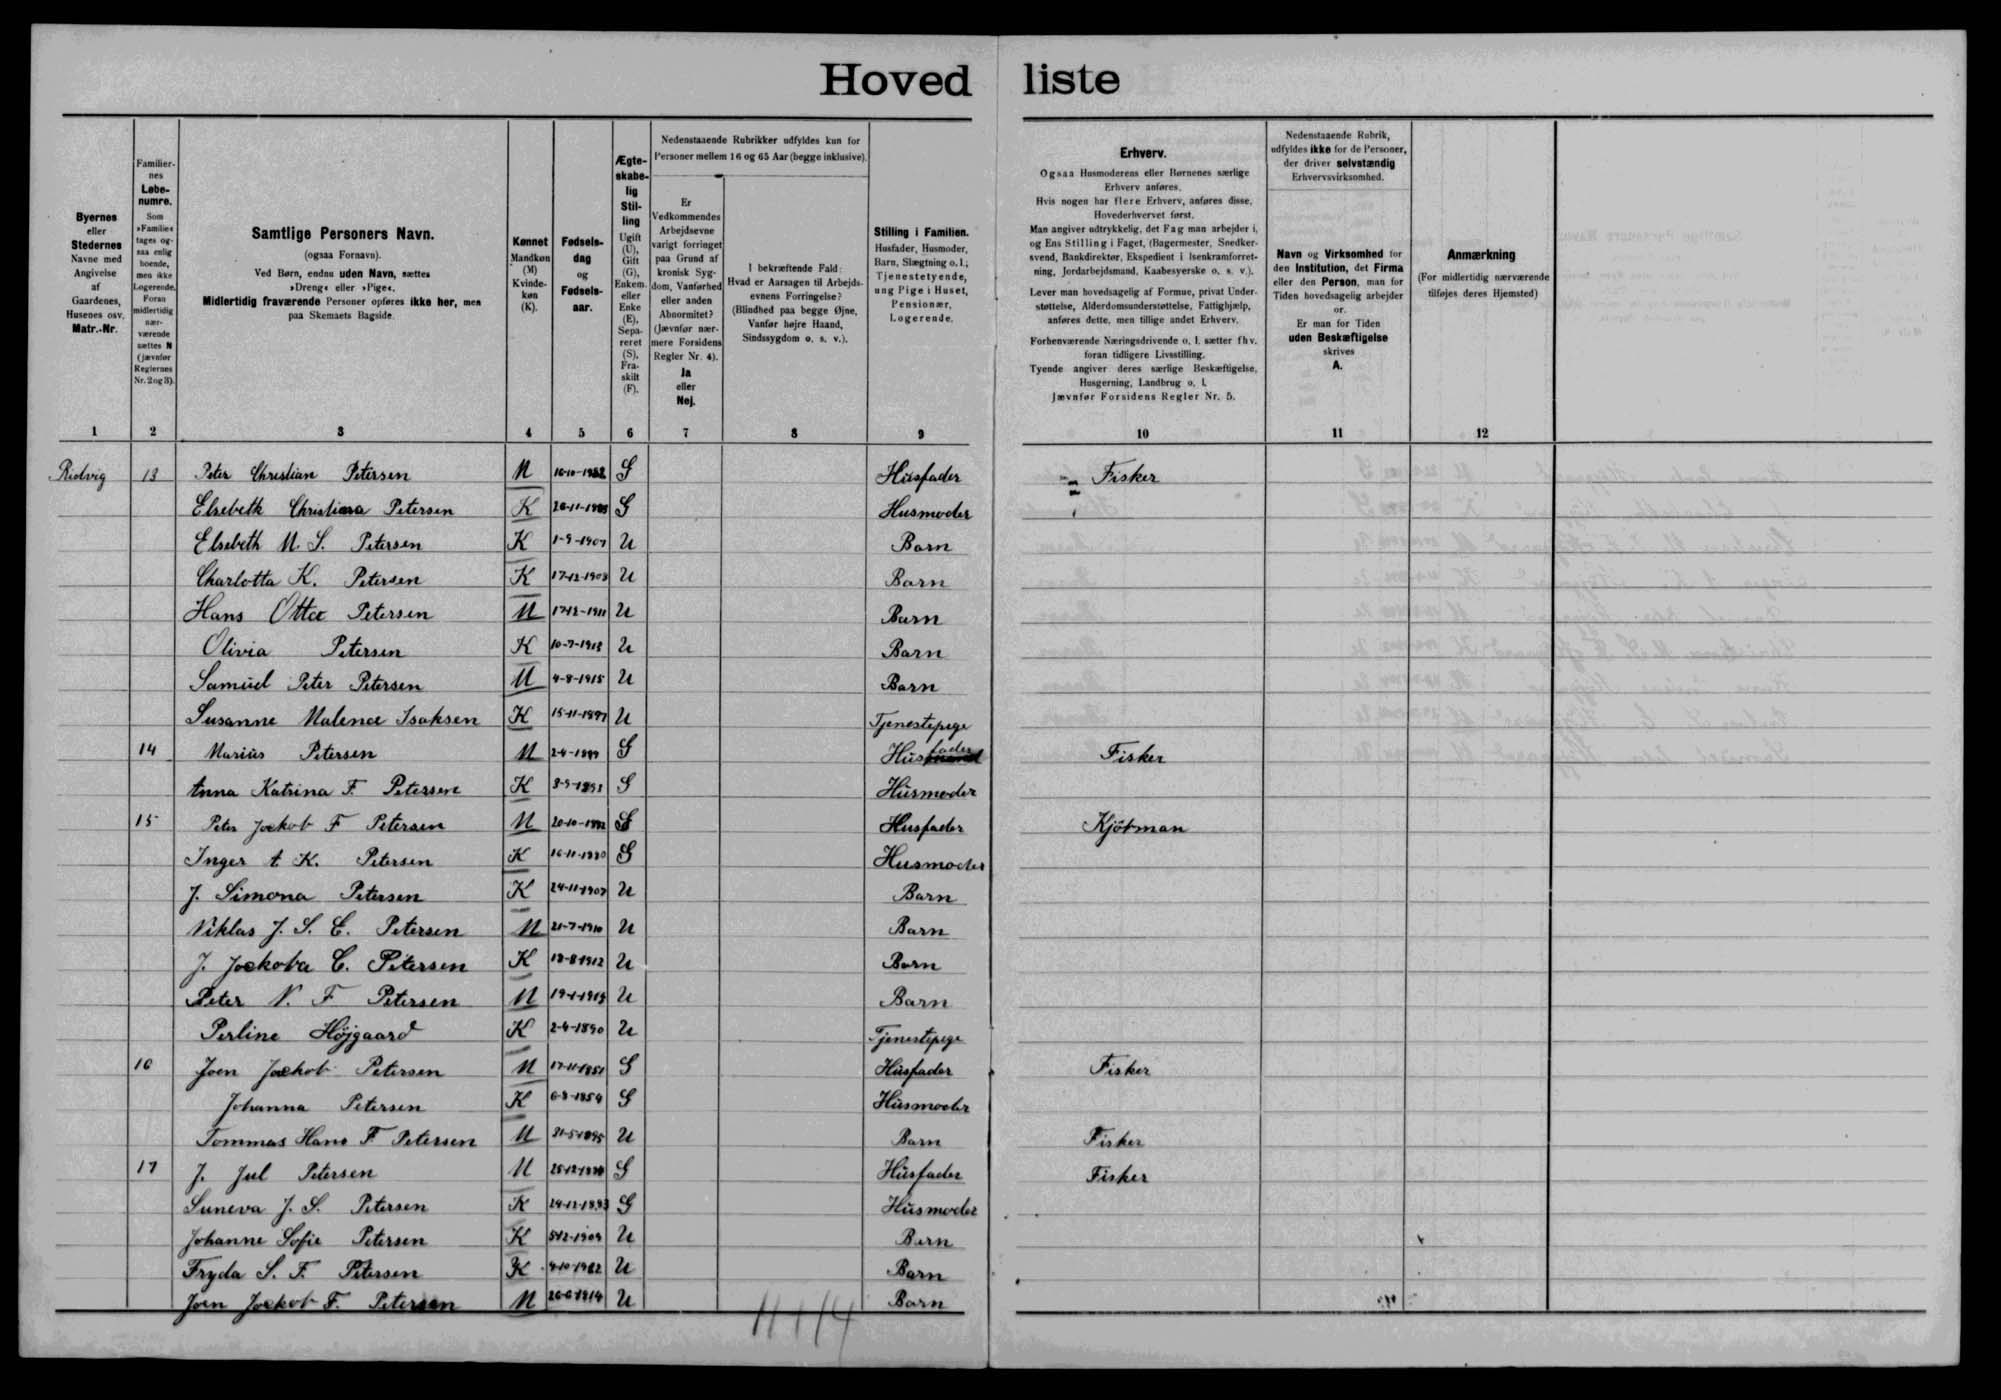 Hoved liste
Byernes
eller
Stedernes
Navne med
Angivelse
af
Gaardenes,
Husenes osv.
Matr.-Nr.
Familier-
nes
Løbe-
numre.
Som
»Familie«
tages og-
saa enlig
boende,
men ikke
Logerende.
Foran
midlertidig
nær-
værende
sættes N
(jævnfør
Reglernes
Nr. 2 og 3).
Samtlige Personers Navn.
(ogsaa Fornavn).
Ved Børn, endnu uden Navn, sættes
»Dreng« eller »Pige«.
Midlertidig fraværende Personer opføres ikke her, men
paa Skemaets Bagside.
Kønnet
Mandkøn
(M)
Kvinde-
køn
(K).
Fødsels-
dag
og
Fødsels-
aar.
Ægte-
skabe-
lig
Stil-
ling
Ugift
(U),
Gift
(G),
Enkem.
eller
Enke
(E),
Sepa-
reret
(S),
Fra-
skilt
(F).
Nedenstaaende Rubrikker udfyldes kun for
Personer mellem 16 og 65 Aar (begge inklusive).
Er
Vedkommendes
Arbejdsevne
varigt forringet
paa Grund af
kronisk Syg-
dom, Vanførhed
eller anden
Abnormitet?
(Jævnfør nær-
mere Forsidens
Regler Nr. 4).
Ja
eller
Nej.
I bekræftende Fald:
Hvad er Aarsagen til Arbejds-
evnens Forringelse?
(Blindhed paa begge Øjne,
Vanfør højre Haand,
Sindssygdom o. s. v.).
Stilling i Familien.
Husfader, Husmoder,
Barn, Slægtning o.l.,
Tjenestetyende,
ung Pige i Huset,
Pensionær,
Logerende.
Erhverv.
Ogsaa Husmoderens eller Børnenes særlige
Erhverv anføres.
Hvis nogen har flere Erhverv, anføres disse,
Hovederhvervet først.
Man angiver udtrykkelig, det Fag man arbejder i,
og Ens Stilling i Faget, (Bagermester, Snedker-
svend, Bankdirektør, Ekspedient i Isenkramforret-
ning, Jordarbejdsmand, Kaabesyerske o. s. v.).
Lever man hovedsagelig af Formue, privat Under-
støttelse, Alderdomsunderstøttelse, Fattighjælp,
anføres dette, men tillige andet Erhverv.
Forhenværende Næringsdrivende o. l. sætter fhv.
foran tidligere Livsstilling.
Tyende angiver deres særlige Beskæftigelse,
Husgerning, Landbrug o. l.
Jævnfør Forsidens Regler Nr. 5.
Nedenstaaende Rubrik,
udfyldes ikke for de Personer,
der driver selvstændig
Erhvervsvirksomhed.
Navn og Virksomhed for
den Institution, det Firma
eller den Person, man for
Tiden hovedsagelig arbejder
for.
Er man for Tiden
uden Beskæftigelse
skrives
A.
Anmærkning
(For midlertidig nærværende
tilføjes deres Hjemsted)
1 2 3 4 5 6 7 8 9 10 11 12
13 Peter Christian Petersen M G Husfader Fisker
Elsebeth Christiana Petersen K G Husmoder
Elsebeth M. S. Petersen K 1-9-1907 U Barn
Charlotta K. Petersen K 17-12-1908 U Barn
Hans Otto Petersen M 17-12-1911 U Barn
Olivia Petersen K 10-7-1913 U Barn
Samuel Peter Petersen M 4-8-1915 U Barn
Susanne Malena Isaksen K 15-11-1897 U Tjenestepige
14 Marius Petersen M G Husfader Fisker
Anna Katrina F. Petersen K G Husmoder
15 Peter Joekob F Petersen M G Husfader Kjötman
Inger A K. Petersen K 16-11-1880 G Husmoder
J. Simona Petersen K 24-11-1907 U Barn
Niklas J. S. E. Petersen M 21-7-1910 U Barn
J. Joekoba C. Petersen K 18-8-1912 U Barn
Peter N. F Petersen M U Barn
Perline Højgaard K 2-4-1890 U Tjenestepige
16 Joen Joekob Petersen M 17-11-1851 G Husfader Fisker
Johanna Petersen K 6-8-1854 G Husmoder
Tommas Hans F Petersen M 21-5-1895 U Barn Fisker
17 J. Jul Petersen M G Husfader Fisker
Suneva J. S. Petersen K 24-12-1883 G Husmoder
Johanne Sofie Petersen K 5-12-1909 U Barn
Fryda S. F. Petersen K U Barn
Joen Joekob F. Petersen M 26-6-1914 U Barn
11+14